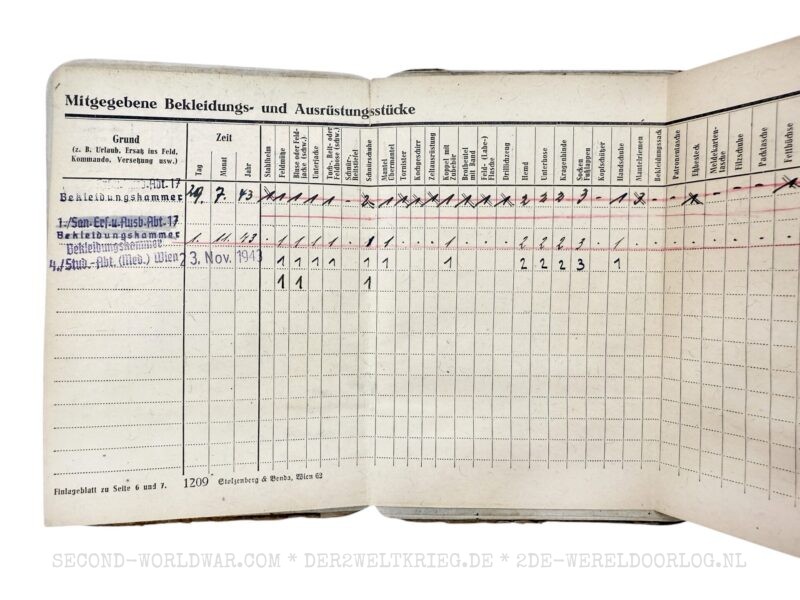 Mitgegebene Bekleidungs- und Ausrüstungsstücke
Grund
(z. B. Urlaub, Ersatz ins Feld,
Kommando, Versetzung usw.)
Zeit
Tag
Monat
Jahr
Stahlhelm
Feldmütze
Bluse oder Feld-
jacke (schw.)
Unterjacke
Tuch-, Reit- oder
Feldhose (schw.)
Schnür-
Reitstiefel
Schnürschuhe
Mantel
Übermantel
Tornister
Kochgeschirr
Zeltausrüstung
Koppel mit
Zubehör
Brotbeutel
mit Band
Feld- (Labe-)
Flasche
Drillichzeug
Hemd
Unterhose
Kragenbinde
Socken
Fußlappen
Kopfschützer
Handschuhe
Mantelriemen
Bekleidungssack
Patronentasche
Eßbesteck
Meldekarten-
tasche
Filzschuhe
Packtasche
Fettbüchse
Abt. 17
Bekleidungskammer
29. 7. 43 1 1 1 1 1 - 2 1 1 1 1 1 1 1 1 2 2 2 3 - 1 3 - - 1 - - - 1
1./San.-Ers.-u.Ausb.-Abt.17
Bekleidungskammer
1. 11. 43 - 1 1 1 1 . 1 1 . . . 1 . . . 2 2 2 2 . 1
Bekleidungskammer
4./Stud.-Abt. (Med.) Wien 23. Nov. 1943 1 1 1 1 1 1 1 2 2 2 3 1
1 1 1
Einlageblatt zu Seite 6 und 7.
1209 Stolzenberg & Benda, Wien 62
SECOND-WORLDWAR.COM * DER2WELTKRIEG.DE * 2DE-WERELDOORLOG.NL